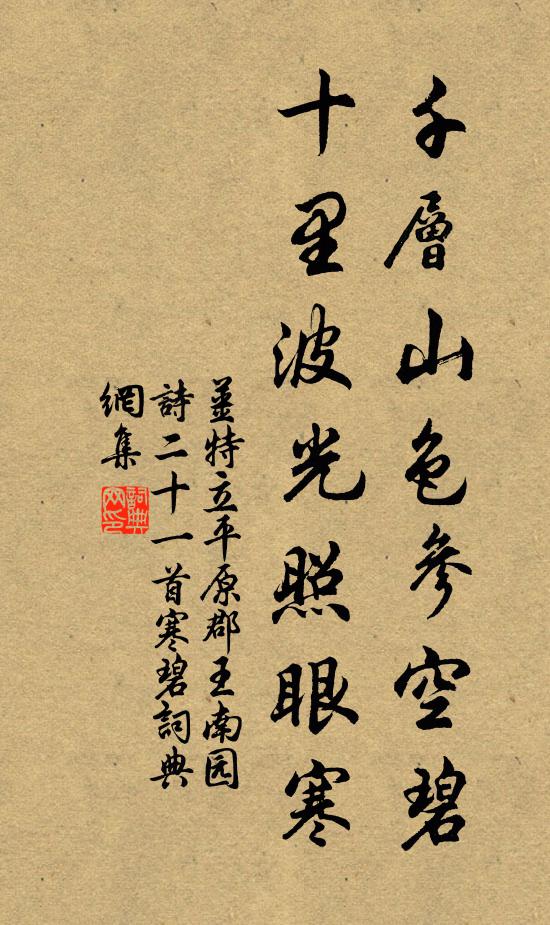 千層山色參空碧
十里波光照眼寒
姜特立平原郡王南园
詩二十一首寒碧詞典
網集
詞典
网印